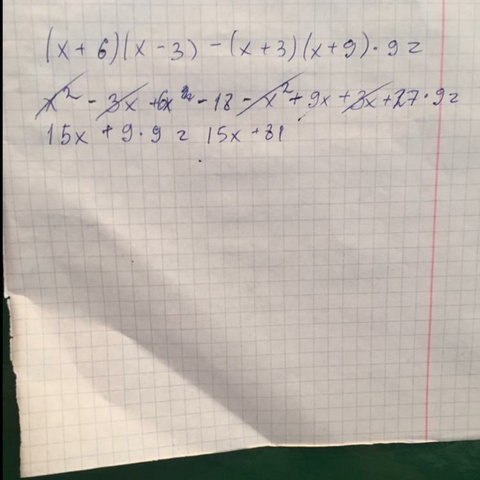 (x + 6)(x - 3) - (x + 3)(x + 9) · 9 =
x² - 3x + 6x - 18 - x² + 9x + 3x + 27 · 9 =
15x + 9 · 9 = 15x + 81